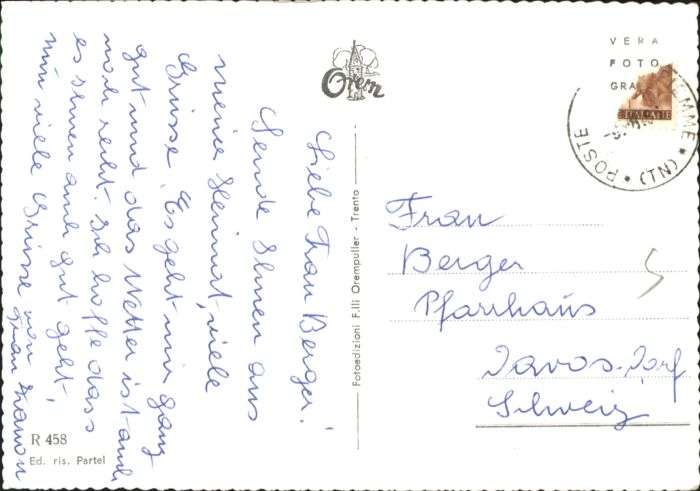 Liebe Frau Berger!
Sende Ihnen aus
meine Heimat, viele
Grüsse. Es geht mir ganz
gut und das Wetter ist auch
noch recht. Ich hoffe dass
es Ihnen auch gut geht,
nun viele Grüsse von
Frau
R 458
Ed. ris. Partel
Orem
Fotoedizioni F.lli Orempuller - Trento
VERA
FOTO
GRA
POSTE
(TN)
Frau
Berger
Pfarrhaus
Davos-Dorf
Schweiz
5